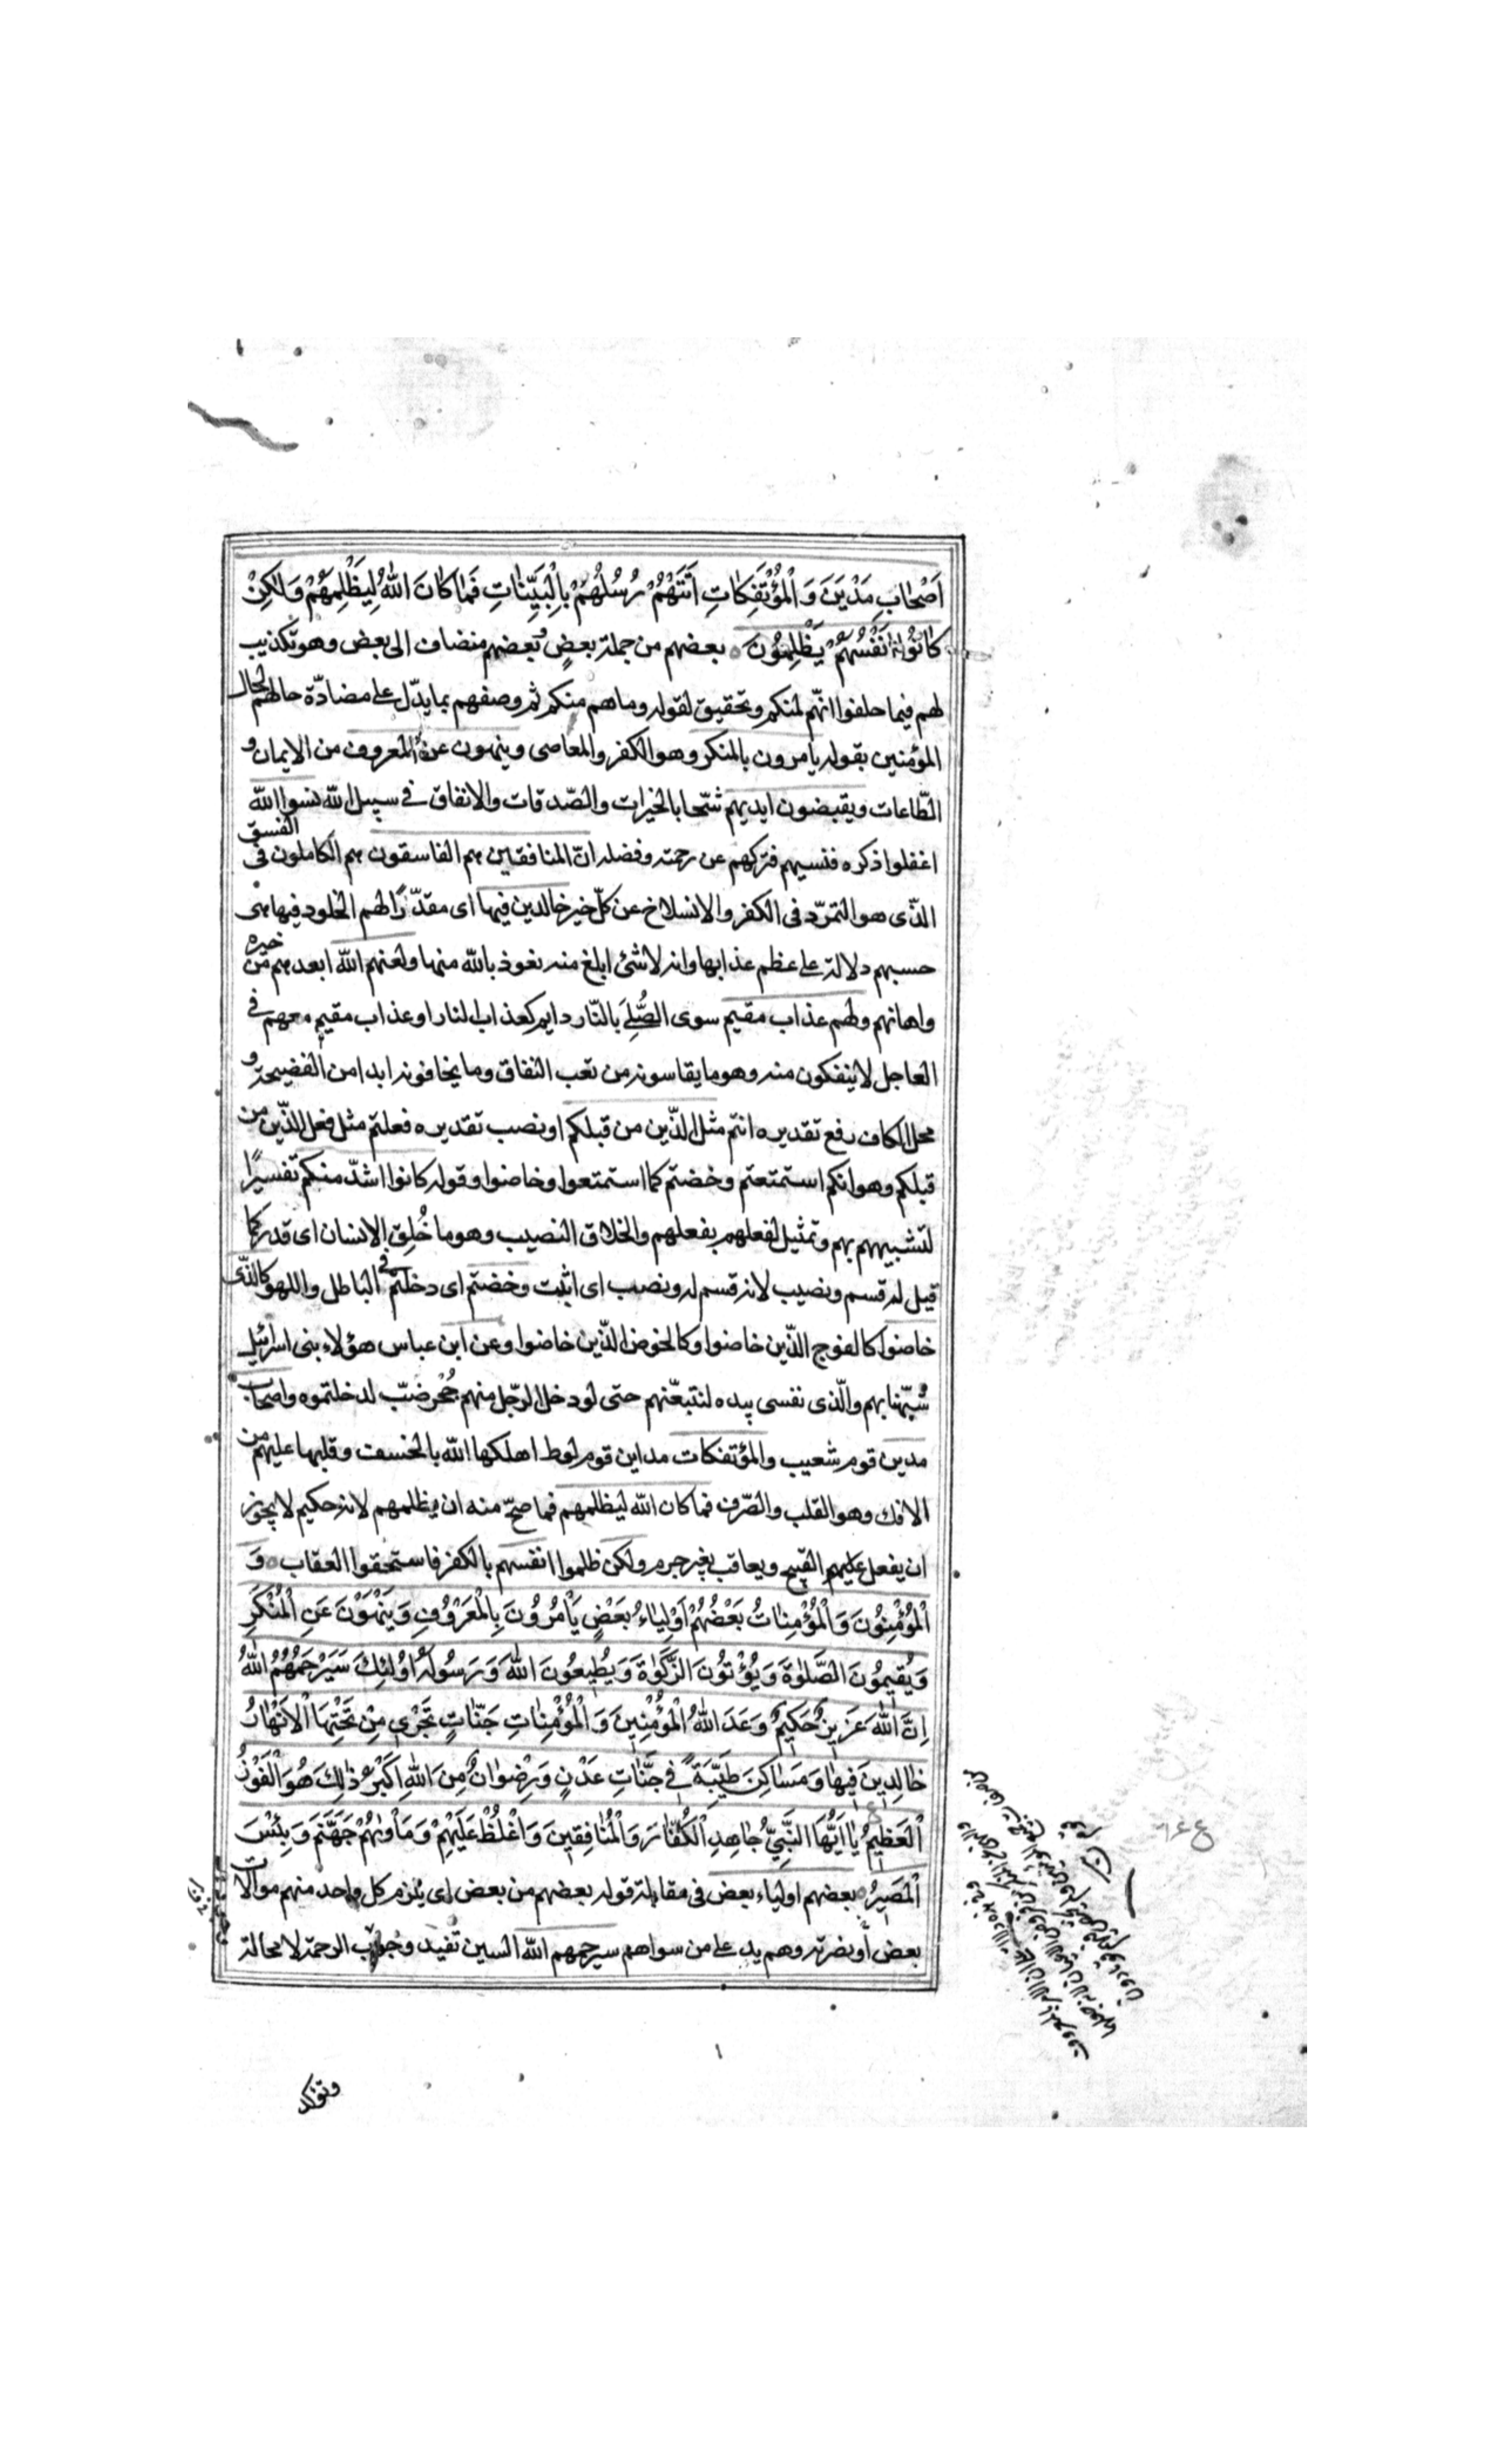 اَصْحٰابِ مَدْيَنَ وَ الْمُؤْتَفِكٰاتِ اَتَتْهُمْ رُسُلُهُمْ بِالْبَيِّنٰاتِ فَمٰا كٰانَ اللّٰهُ لِيَظْلِمَهُمْ وَ لٰكِنْ
كٰانُوْا اَنْفُسَهُمْ يَظْلِمُوْنَ بعضهم من جملة بعضٍ وبعضهم منضاف الى بعض وهو تكذيب
لهم فيما حلفوا انّهم لمنكم وتحقيق لقوله وما هم منكم ثم وصفهم بما يدّل على مضادّة حالهم لحال
المؤمنين بقوله يامرون بالمنكر وهو الكفر والمعاصى وينهون عن المعروف من الايمان و
الطّاعات ويقبضون ايديهم شحّا بالخيرات والصّدقات والانفاق في سبيل الله نسوا الله
اغفلوا ذكره فنسيهم فتركهم عن رحمته وفضله انّ المنافقين هم الفاسقون هم الكاملون فى الفسق
الذّى هو التمرّد فى الكفر والانسلاخ عن كلّ خير خالدين فيها اى مقدّرًا لهم الخلود فيها هى
حسبهم دلالة على عظم عذابها وانه لا شئ ابلغ منه نعوذ بالله منها ولعنهم الله ابعدهم من خيره
واهانهم ولهم عذاب مقيم سوى الصُّلِىَ بالنّار دايم كعذاب النار او عذاب مقيم معهم في
العاجل لا ينفكون منه وهو ما يقاسونه من تعب النفاق وما يخافونه ابدا من الفضيحة و
محل الكاف رفع تقديره انتم مثل الذّين من قبلكم او نصب تقديره فعلتم مثل فعل الذّين من
قبلكم وهو انكم استمتعتم وخضتم كما استمتعوا وخاضوا وقوله كانوا اشدّ منكم تفسيرًا
لتشبيههم بهم وتمثيل لفعلهم بفعلهم والخلاق النصيب وهو ما خُلِق الانسان اى قدر كما
قيل له قسم ونصيب لانه قسم له ونصب اى اثبت وخضتم اى دخلتم في الباطل واللهو كالذّى
خاضوا كالفوج الذّين خاضوا وكالخوض الذّين خاضوا وعن ابن عباس هؤلاء بنى اسرائيل
شُبّهنا بهم والّذى نفسى بيده لنتبعّنهم حتى لو دخل الرّجل منهم جُحْرَ ضبّ لدخلتموه واصحاب
مدين قوم شعيب والمؤتفكات مداين قوم لوط اهلكها الله بالخسف وقلبها عليهم من
الافك وهو القلب والصّرف فما كان الله ليظلمهم فما صحّ منه ان يظلمهم لانه حكيم لا يجوز
ان يفعل عليهم القبيح ويعاقب بغير جرم ولكن ظلموا انفسهم بالكفر فاستحقوا العقاب وَ
الْمُؤْمِنُوْنَ وَ الْمُؤْمِنٰاتُ بَعْضُهُمْ اَوْلِيٰاءُ بَعْضٍ يَاْمُرُوْنَ بِالْمَعْرُوْفِ وَ يَنْهَوْنَ عَنِ الْمُنْكَرِ
وَ يُقِيمُوْنَ الصَّلٰوةَ وَ يُؤْتُوْنَ الزَّكٰوةَ وَ يُطِيعُوْنَ اللّٰهَ وَ رَسُولَهُ اُولٰئِكَ سَيَرْحَمُهُمُ اللّٰهُ
اِنَّ اللّٰهَ عَزِيزٌ حَكِيمٌ وَعَدَ اللّٰهُ الْمُؤْمِنِينَ وَ الْمُؤْمِنٰاتِ جَنّٰاتٍ تَجْرِى مِنْ تَحْتِهَا الْاَنْهٰارُ
خٰالِدِينَ فِيهٰا وَ مَسٰاكِنَ طَيِّبَةً فِي جَنّٰاتِ عَدْنٍ وَ رِضْوٰانٌ مِنَ اللّٰهِ اَكْبَرُ ذٰلِكَ هُوَ الْفَوْزُ
الْعَظِيمُ يٰا اَيُّهَا النَّبِيُّ جٰاهِدِ الْكُفّٰارَ وَ الْمُنٰافِقِينَ وَ اغْلُظْ عَلَيْهِمْ وَ مَاْوٰيهُمْ جَهَنَّمُ وَ بِئْسَ
الْمَصِيرُ بعضهم اولياء بعض فى مقابلة قوله بعضهم من بعض اى يلزم كل واحد منهم موالات
بعض او نصرته وهم يد على من سواهم سيرحمهم الله السين تفيد وجوب الرحمة لا محالة
وتؤكد